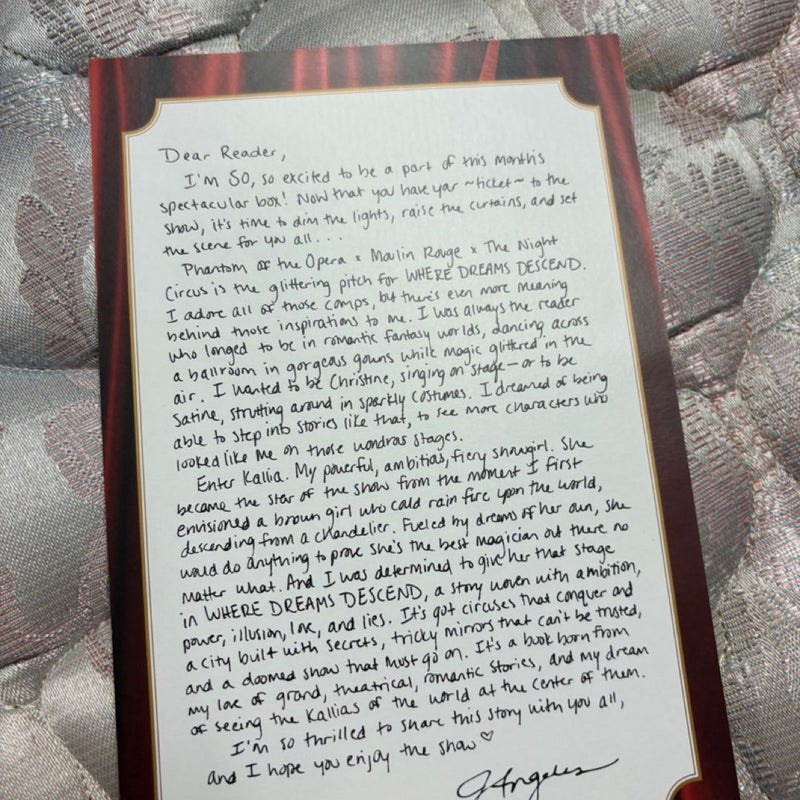 Dear Reader,
I'm SO, so excited to be a part of this month's
spectacular box! Now that you have your ~ticket~ to the
show, it's time to dim the lights, raise the curtains, and set
the scene for you all...
Phantom of the Opera x Moulin Rouge x The Night
Circus is the glittering pitch for WHERE DREAMS DESCEND.
I adore all of those comps, but there's even more meaning
behind those inspirations to me. I was always the reader
who longed to be in romantic fantasy worlds, dancing across
a ballroom in gorgeous gowns while magic glittered in the
air. I wanted to be Christine, singing on stage—or to be
Satine, strutting around in sparkly costumes. I dreamed of being
able to step into stories like that, to see more characters who
looked like me on those wondrous stages.
Enter Kallia. My powerful, ambitious, fiery showgirl. She
became the star of the show from the moment I first
envisioned a brown girl who could rain fire upon the world,
descending from a chandelier. Fueled by dreams of her own, she
would do anything to prove she's the best magician out there no
matter what. And I was determined to give her that stage
in WHERE DREAMS DESCEND, a story woven with ambition,
power, illusion, love, and lies. It's got circuses that conquer and
a city built with secrets, tricky mirrors that can't be trusted,
and a doomed show that must go on. It's a book born from
my love of grand, theatrical, romantic stories, and my dream
of seeing the Kallias of the world at the center of them.
I'm so thrilled to share this story with you all,
and I hope you enjoy the show ♡
J Angeles